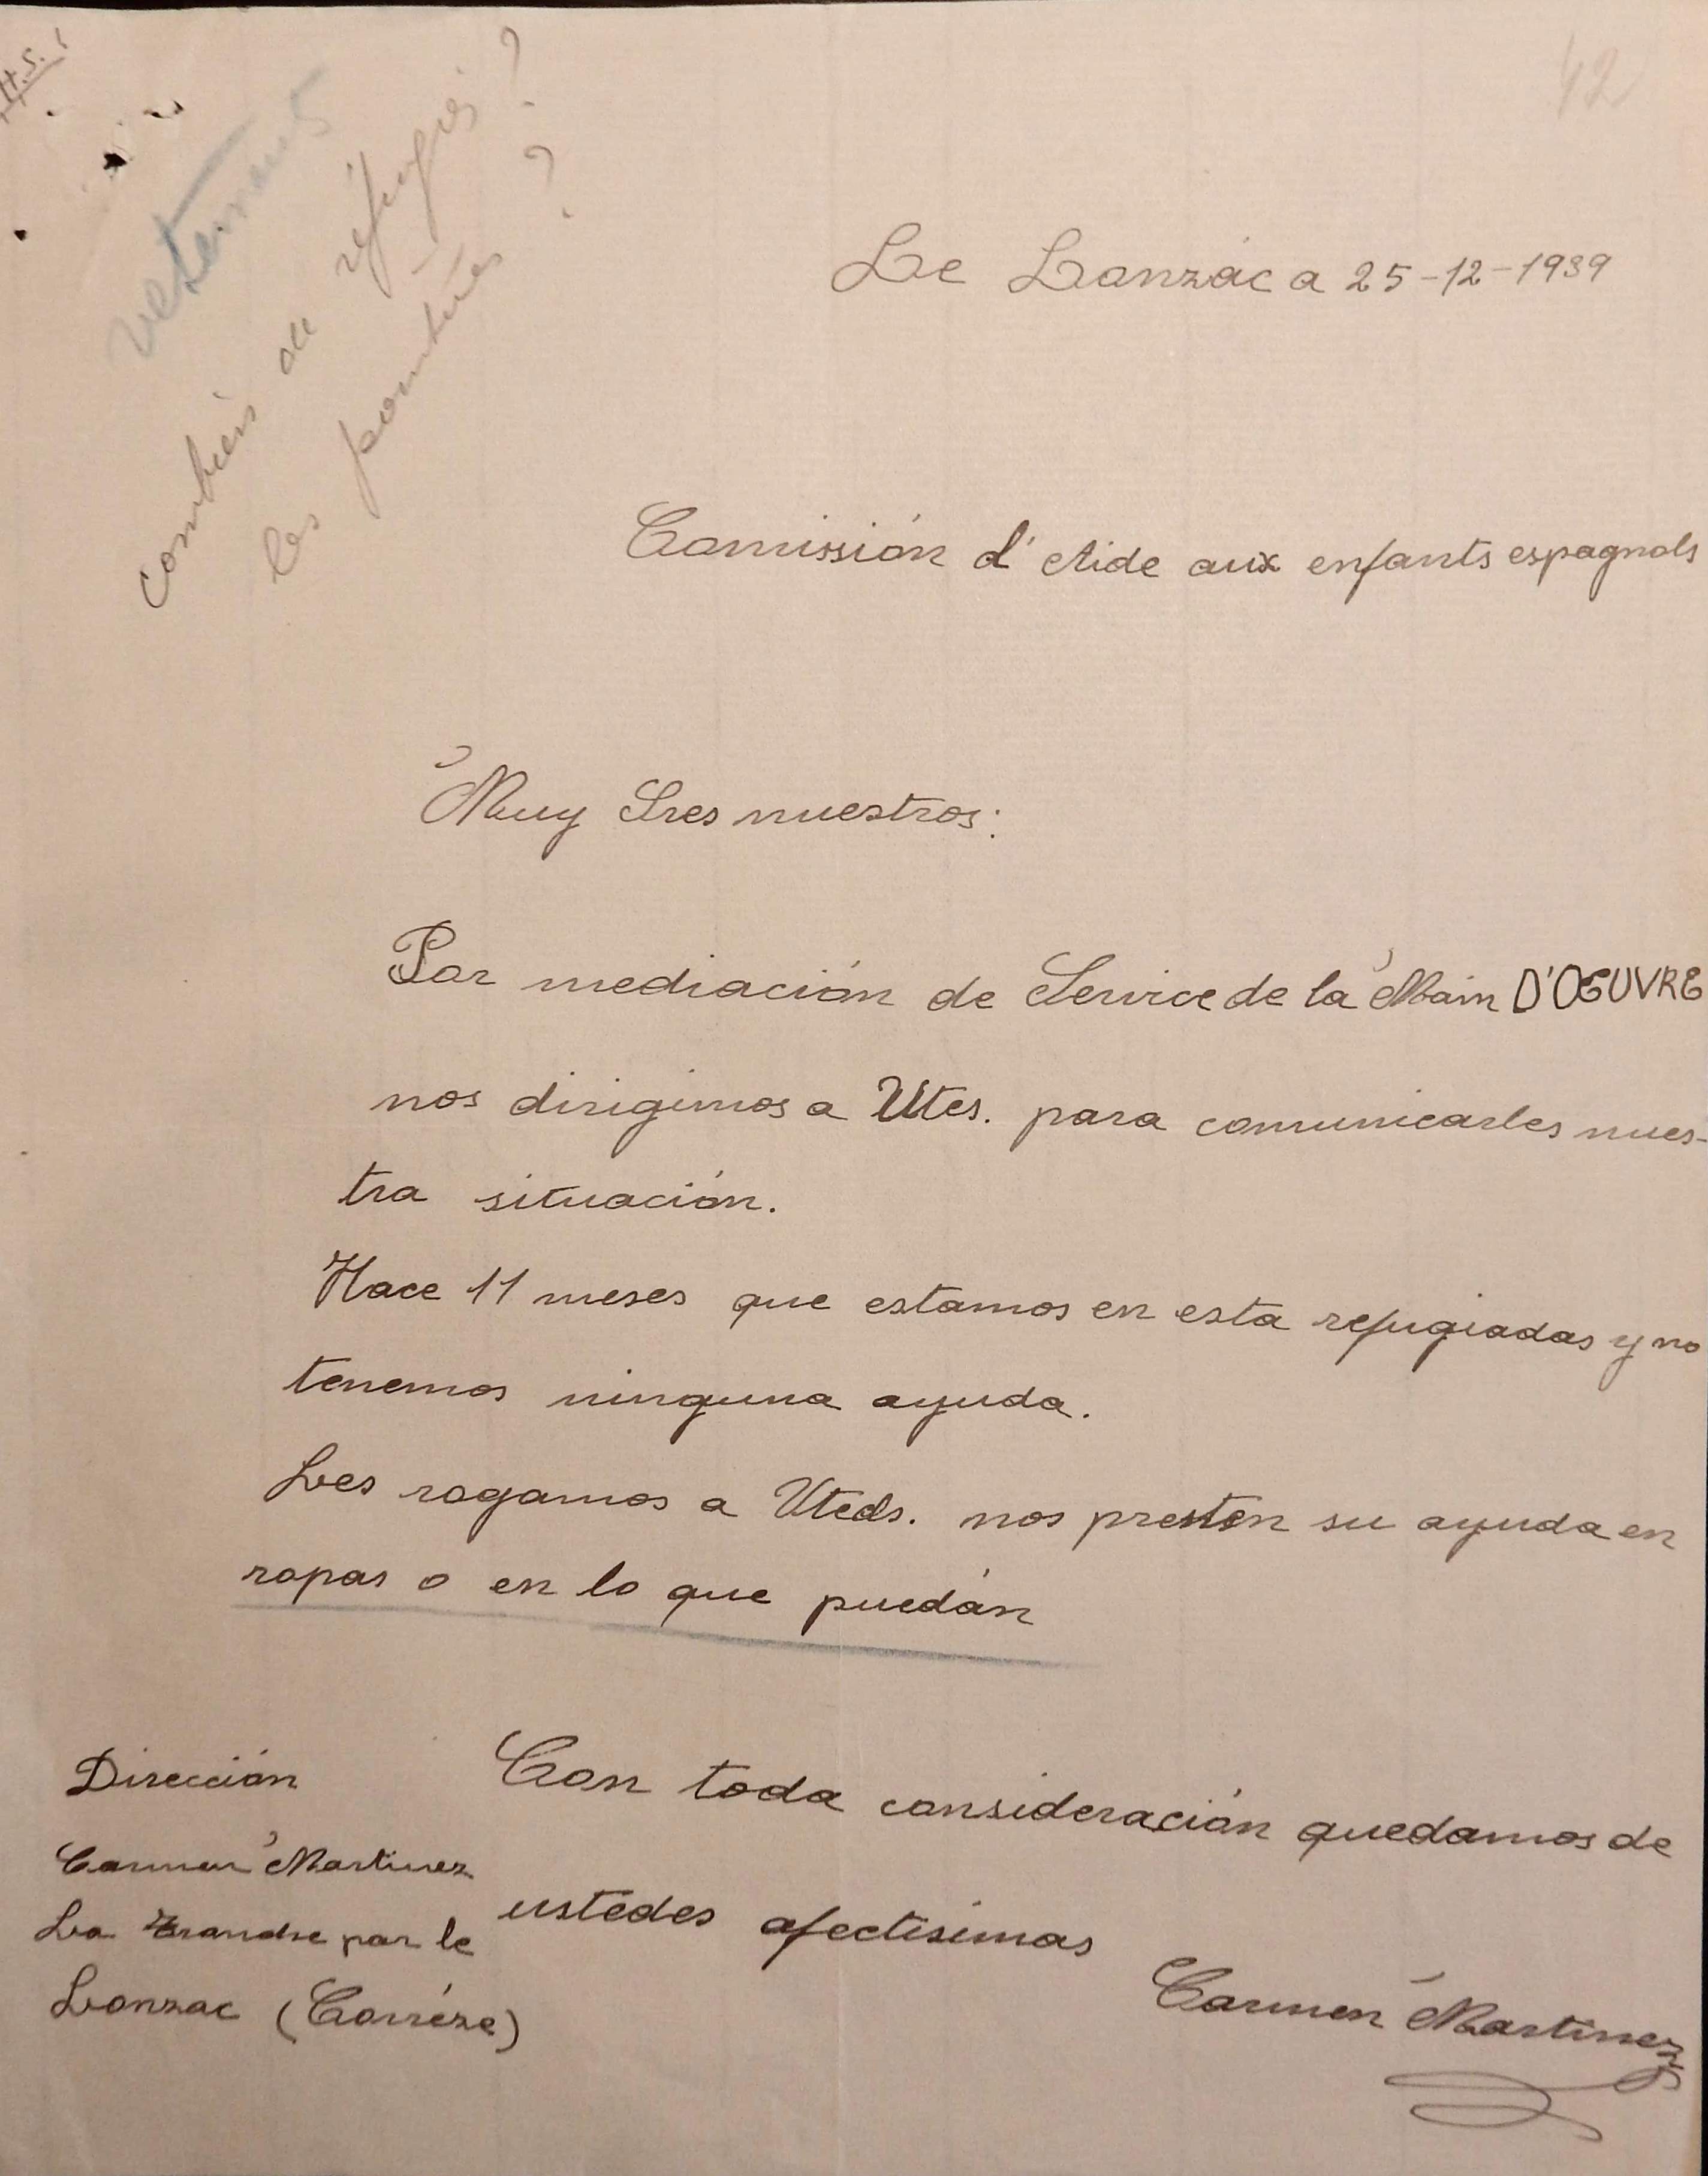 H.S.
42
vetements
combien de réfugiés ?
les pointures ?
Le Lonzác a 25-12-1939
Comissión d'Aide aux enfants espagnols
Muy Sres nuestros:
Por mediación de Service de la Main D'OEUVRE
nos dirigimos a Utes. para comunicarles nues-
tra situación.
Hace 11 meses que estamos en esta refugiadas y no
tenemos ninguna ayuda.
Les rogamos a Uteds. nos presten su ayuda en
ropas o en lo que puedán
Con toda consideración quedamos de
ustedes afectisimas
Carmen Martinez
Dirección
Carmen Martinez
La par le
Lonzac (Corréze)